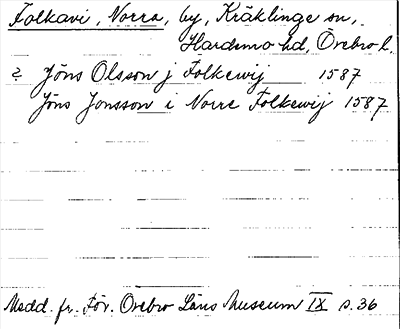 Folkavi, Norra, by, Kräklinge sn,
Hardemo hd, Örebro l.
2 Jöns Olsson j Folkewij 1587
Jöns Jonsson i Norre Folkewij 1587
Medd. fr. För. Örebro Läns Museum IX s. 36